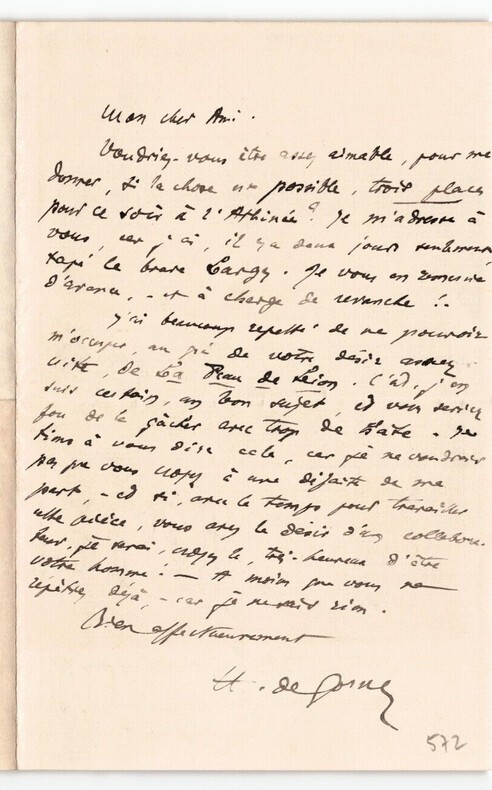 Mon cher Ami.
Voudriez-vous être assez aimable, pour me
donner, si la chose est possible, trois places
pour ce soir à l'Athénée? Je m'adresse à
vous, car j'ai, il y a deux jours seulement,
tapé le brave Largy. Je vous en remercie
d'avance, - et à charge de revanche!.
J'ai beaucoup regretté de ne pouvoir
m'occuper, au gré de votre désir assez
vite, de La Peau de Lion. C'est, j'en
suis certain, un bon sujet, et vous seriez
fou de le gâcher avec trop de hâte. Je
tiens à vous dire cela, car je ne voudrais
pas que vous croyez à une défaite de ma
part, - et si, avec le temps pour travailler
cette pièce, vous avez le désir d'un collabora-
teur, je serai, croyez le, très-heureux d'être
votre homme! - A moins que vous ne
répétiez déjà, - car je ne sais rien.
Bien affectueusement
H. de Gorsse
572